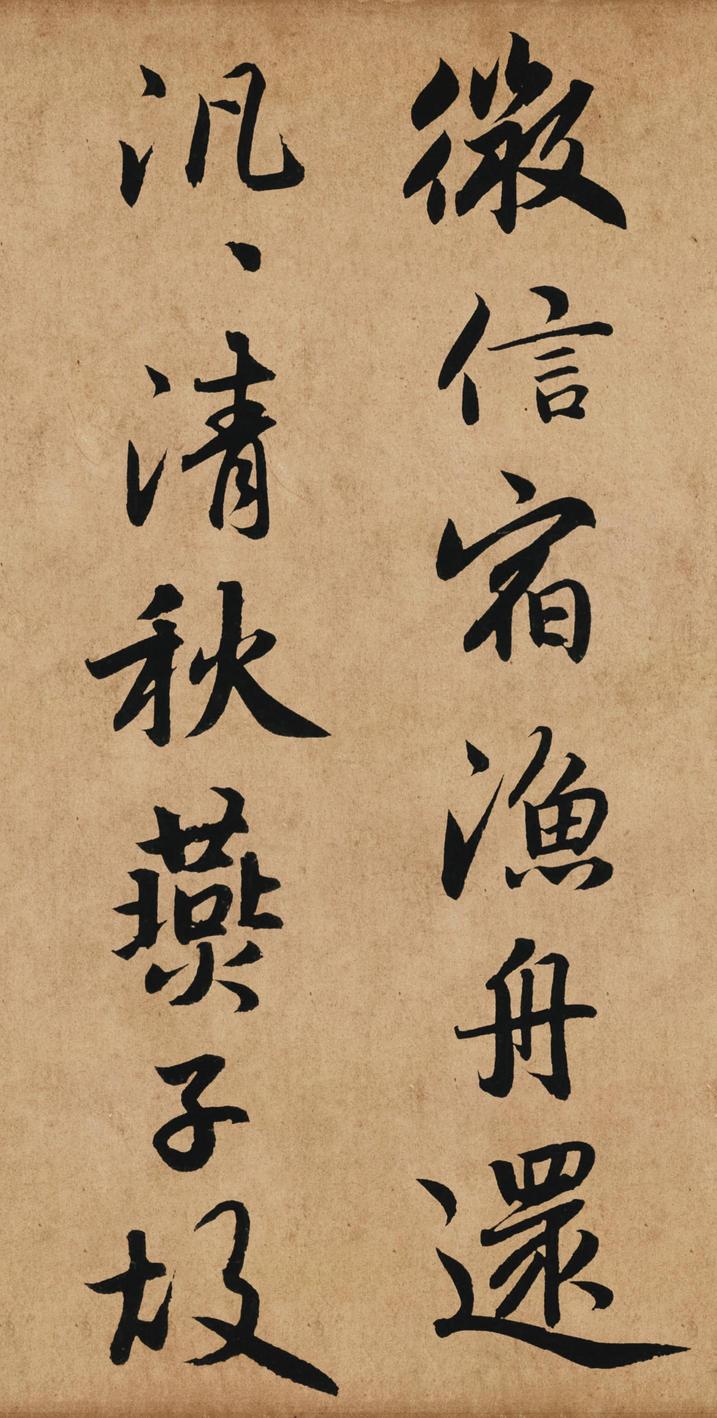 微信宿漁舟還
汎〻清秋燕子故